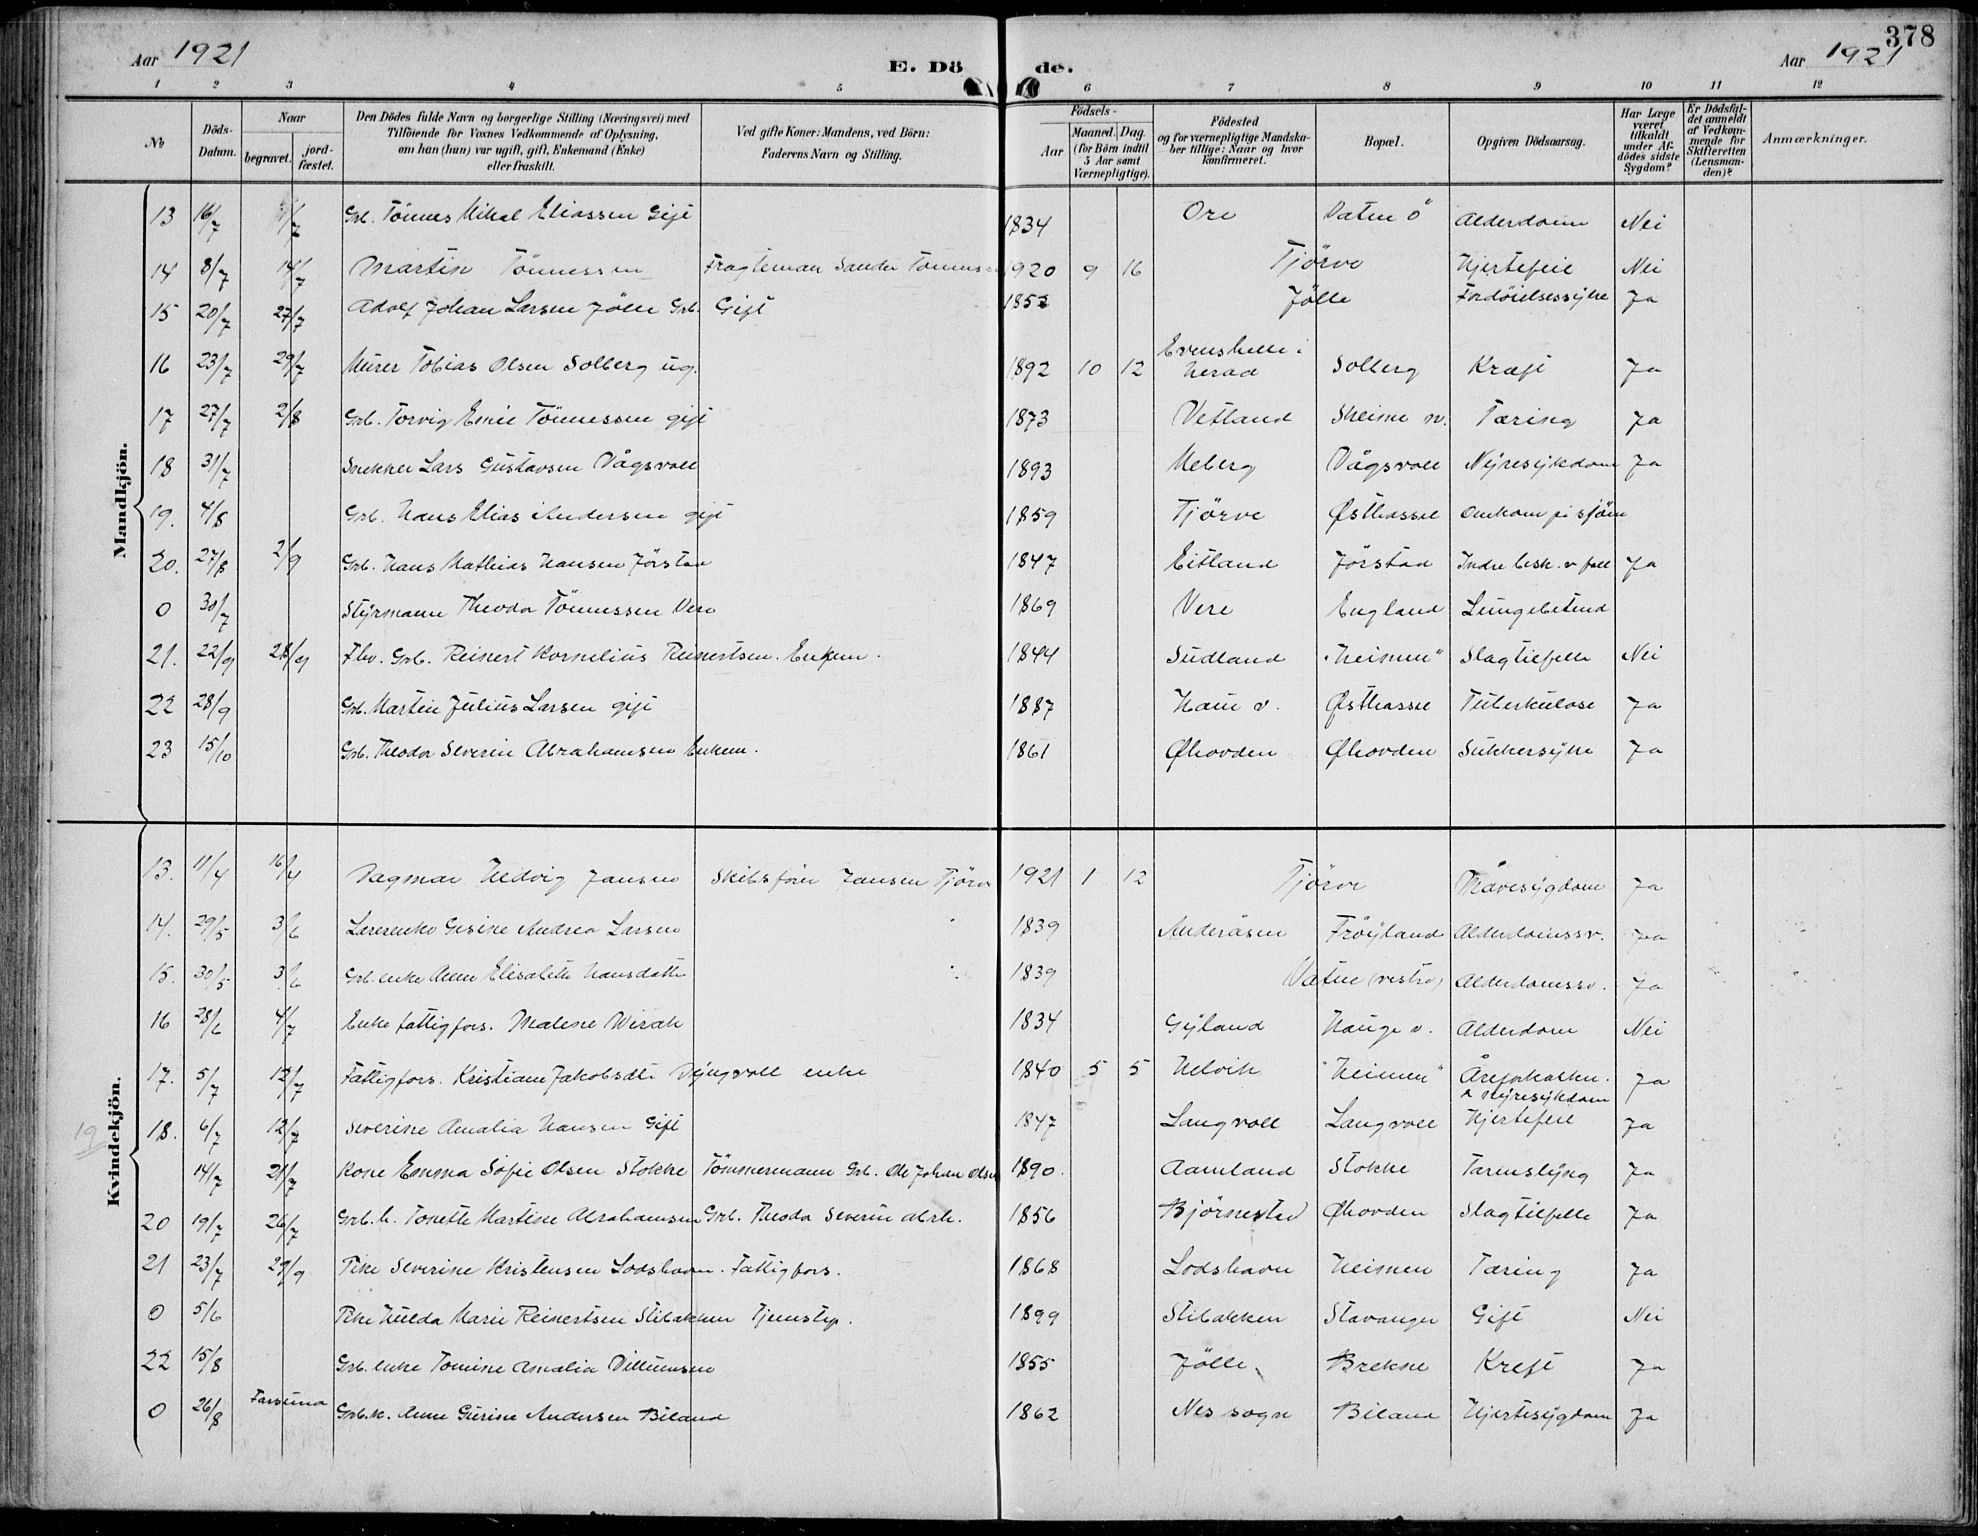 378
Aar 1921 E. Dö de. Aar 1921
1 2 3 4 5 6 7 8 9 10 11 12
No Döds-Datum. Naar begravet. jord-fæstet. Den Dödes fulde Navn og borgerlige Stilling (Næringsvei) med Tilföiende for Voxnes Vedkommende af Oplysning, om han (hun) var ugift, gift, Enkemand (Enke) eller fraskilt. Ved gifte Koner: Mandens, ved Börn: Faderens Navn og Stilling. Födsels- Aar Maaned. Dag. (for Börn indtil 5 Aar samt Værnepligtige). Födested og for værnepligtige Mandskaber tillige: Naar og hvor konfirmeret. Bopæl. Opgiven Dödsaarsag. Har Læge været tilkaldt under Afdödes sidste Sygdom? Er Dödsfaldet anmeldt af Vedkommende for Skifteretten (Lensmanden)? Anmærkninger.
Mandkjön.
13 16/7 Grb. Tönnes Mikal Eliassen Gift 1834 Ore Vatne ö Alderdom Nei
14 8/7 14/7 Martin Tönnessen Fragteman Sander Tönness 1920 9 16 Tjörve Hjertefeil Nei
15 20/7 27/7 Adolf Johan Larsen Jölle Grb. Gift 1852 Jölle Fordöielsessyke Ja
16 23/7 29/7 Murer Tobias Olsen Solberg ug. 1892 10 12 Evenshelle i Herad Solberg Kræft Ja
17 27/7 2/8 Grb. Torvig Emil Tönnessen gift 1873 Vetland Skeime n. Tæring Ja
18 31/7 Snekker Lars Gustavsen Vågsvoll 1893 Meberg Vågsvoll Nyresykdom Ja
19. 4/8 Grb. Hans Elias Andersen gift 1859 Tjörve Østhassel Omkom på sjöen
20. 27/8 2/9 Grb. Hans Mathias Hansen Jörstad 1847 Eitland Jörstad Indre besk. v fall Ja
0 30/7 Styrmann Theodor Tönnessen Vere 1869 Vere England Lungebetend
21. 22/9 28/9 Fhv. Grb. Reinert Kornelius Reinertsen. Enkem. 1844 Sudland "Heimen" Slagtilfelle Nei
22 28/9 Grb. Martin Julius Larsen gift 1887 Haui v. Østhassel Tuberkulose Ja
23 15/10 Grb. Theodor Severin Abrahamsen Enkem. 1861 Øhovden Øhovden Sukkersyke Ja
Kvindekjön.
13. 11/4 16/4 Dagmar Hedvig Jansen Skibsförer Jansen Tjörve 1921 1 12 Tjörve Mavesygdom Ja
14. 29/5 3/6 Lærerenke Gesine Andrea Larsen 1839 Anderåsen Fröyland Alderdomssv. Ja
15. 30/5 3/6 Grb. enke Anne Elisabeth Hansdatter 1839 Vatne (vestre) Alderdomssv. Ja
16 28/6 4/7 Enke fattigfors. Malene Wirak 1834 Gyland Hauge v. Alderdom Nei
17. 5/7 12/7 Fattigfors. Kristiane Jakobsdt. Dyngvoll enke 1840 5 5 Helvik "Heimen" Åreforkalkn. & Nyresykdom Ja
19
18. 6/7 12/7 Severine Amalia Hansen Gift 1847 Langvoll Langvoll Hjertefeil Ja
14/7 21/7 Kone Emma Sofie Olsen Stokke Tömmermann Grb. Ole Johan Olsen 1890. Aamland Stokke Tarmslyng Ja
20 19/7 26/7 Grb. k. Tonette Martine Abrahamsen Grb. Theodor Severin Abrh. 1856 Björnestad Øhovden Slagtilfelle Ja
21 23/7 29/9 Pike Severine Kristensen Lodshavn. Fattigfors. 1868 Lodshavn Heimen Tæring Ja
0 5/6 Pike Hulda Marie Reinertsen Stibakken Tjenstep. 1899 Stibakken Stavanger Gift Nei
22 15/8 Grb. enke Tomine Amalia Villumsen 1855 Jölle Brekne Kreft Ja
0 26/8 Farsund Grb. k. Anne Gurine Andersen Biland 1862 Nes sogn Biland Hjertesygdom Ja